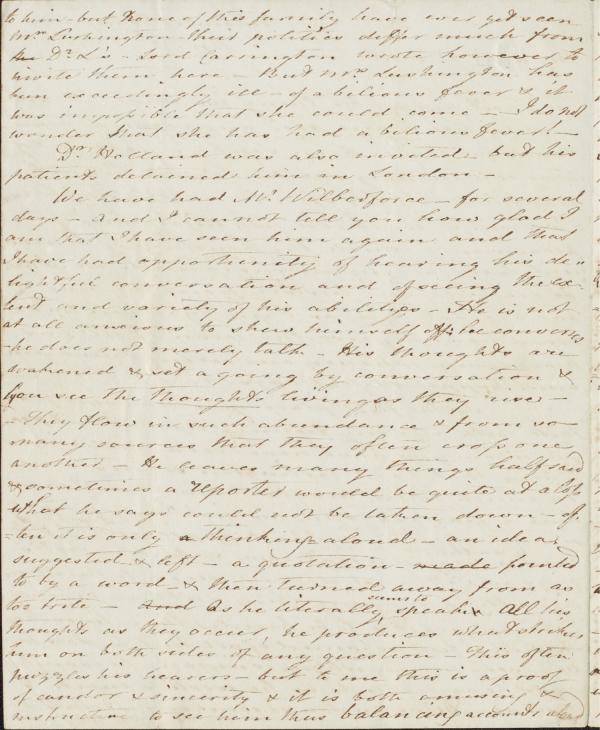 to him - but none of this family have ever yet seen
Mrs Lushington - their politics differ much from
Dr L's - Lord Carrington wrote however to
invite them here - But Mrs Lushington has
been exceedingly ill - of a bilious fever & it
was impossible that she could come - I do not
wonder that she has had a bilious fever!
Dr Holland was also invited - but his
patients detained him in London -
We have had Mr Wilberforce - for several
days - and I cannot tell you how glad I
am that I have seen him again and that
I have had opportunity of hearing his de-
lightful conversation and of seeing the ex-
tent and variety of his abilities - He is not
at all anxious to shew himself off he converses
- he does not merely talk - His thoughts are
wakened & set a going by conversation &
you see the thoughts living as they rise -
- They flow in such abundance & from so
many sources that they often cross one
another - He leaves many things half said
& sometimes a reporter would be quite at a loss
What he says could not be taken down - of-
ten it is only a thinking aloud - an idea
suggested & left - a quotation - made pointed
to by a word - & then turned away from as
too trite - And As he literally seems to speak All his
thoughts as they occur, he produces what strikes
him on both sides of any question - This often
puzzles his hearers - but to me this is a proof
of candor & sincerity & it is both amusing &
instructive to see him thus balancing accounts aloud